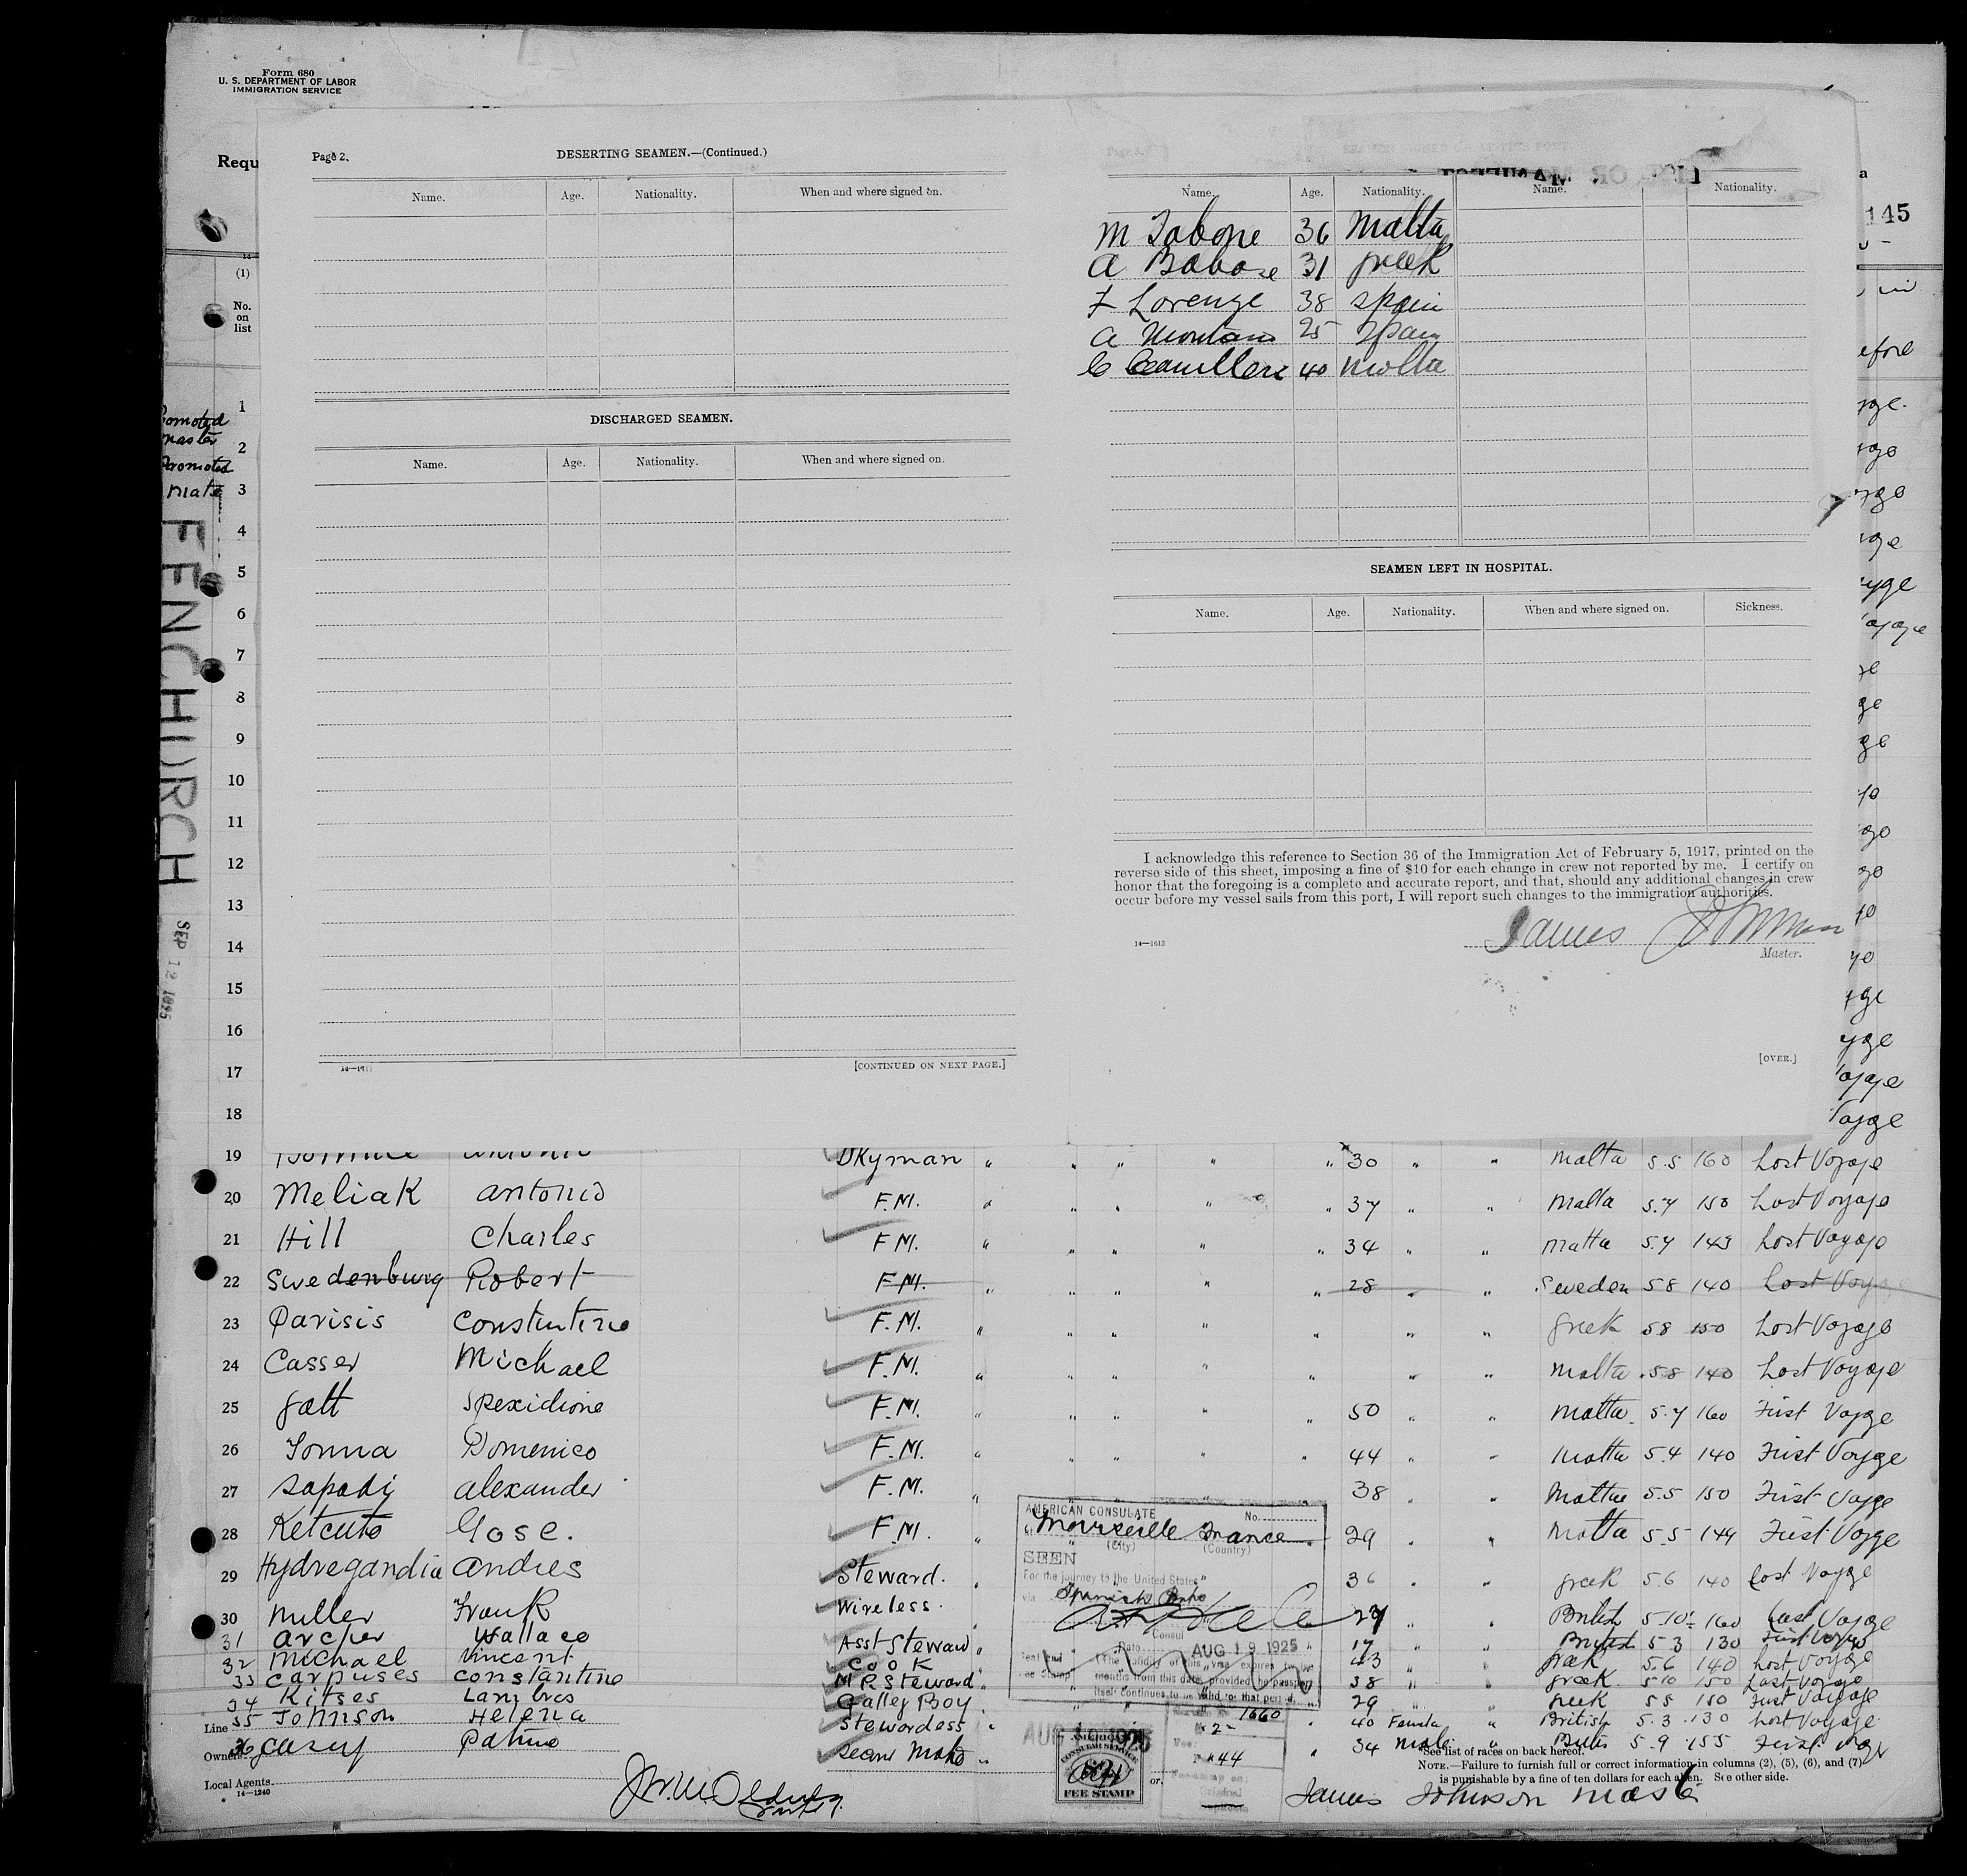 Form 680
U. S. DEPARTMENT OF LABOR
IMMIGRATION SERVICE
Requ
Page 2.
DESERTING SEAMEN.—(Continued.)
Name. Age. Nationality. When and where signed on.
DISCHARGED SEAMEN.
Name. Age. Nationality. When and where signed on.
14—1613
[CONTINUED ON NEXT PAGE.]
Name. Age. Nationality. Name. Nationality.
M Tabone 36 Malta
A 31 Greek
F Lorenze 38 Spain
A 25 Spain
C 40 Malta
SEAMEN LEFT IN HOSPITAL.
Name. Age. Nationality. When and where signed on. Sickness.
I acknowledge this reference to Section 36 of the Immigration Act of February 5, 1917, printed on the
reverse side of this sheet, imposing a fine of $10 for each change in crew not reported by me. I certify on
honor that the foregoing is a complete and accurate report, and that, should any additional changes in crew
occur before my vessel sails from this port, I will report such changes to the immigration authorities.
James Johnson
14—1613
Master.
[OVER.]
a
145
(1)
No.
on
list
1
2
Promoted
Mate
3
4
5
6
7
8
9
10
11
12
13
14
15
16
17
18
FENCHURCH
SEP 12 1925
19 Dkyman " " " " " 30 " " Malta 5.5 160 Last Voyage
20 Meliak Antonio F.M. " " " " " 37 " " Malta 5.7 150 Last Voyage
21 Hill Charles F.M. " " " " " 34 " " Malta 5.7 143 Last Voyage
22 Swedenburg Robert F.M. " " " " " 28 " " Sweden 5 8 140 Last Voya
23 Parisis Constintine F.M. " " " " " " " Greek 5 8 150 Last Voyage
24 Casser Michael F.M. " " " " " " " Malta 5 8 140 Last Voyage
25 Gatt F.M. " " " " " 50 " " Malta 5.7 160 First Voyage
26 Tonna Domenico F.M. " " " " " 44 " " Malta 5.4 140 First Voyage
27 Alexander F.M. " 38 " " 5.5 150 First Voyage
28 Gose. F.M. " 29 " " Malta 5.5 149 First Voyge
29 Hydregandia Andres Steward. " 36 " " Greek 5.6 140 Last Voyge
30 Miller Frank Wireless. 27 " " British 5.10 160 Last Voyge
31 Archer Wallace Asst Steward " 17 " " British 5 3 130 First Voyge
32 Michael Vincent Cook " 43 " " Greek 5.6 140 Last Voyage
33 Carpuses Constantine M R Steward " 38 " " Greek 5.10 150 Last Voyage
34 Kitses Lambros Galley Boy " 29 " " Greek 5 8 150 First Voyage
35 Johnson Helena Stewardess " " 40 Female " British 5.3 130 Last Voyage
36 Casey 34 Male " 5.9 155 First Voyge
AMERICAN CONSULATE
No.
Marseille France
(City) (Country)
SEEN
For the journey to the United States
via Spanish Ports
Consul
Date AUG 19 1925
(The validity of this visa expires twelve
months from this date, provided the passport
itself continues to be valid for that period.
1660
2-
44
AMERICAN
CONSULAR SERVICE
FEE STAMP
Line
Owners
Local Agents
14—1240
or.
See list of races on back hereof.
NOTE.—Failure to furnish full or correct information in columns (2), (5), (6), and (7)
is punishable by a fine of ten dollars for each alien. See other side.
James Johnson Master